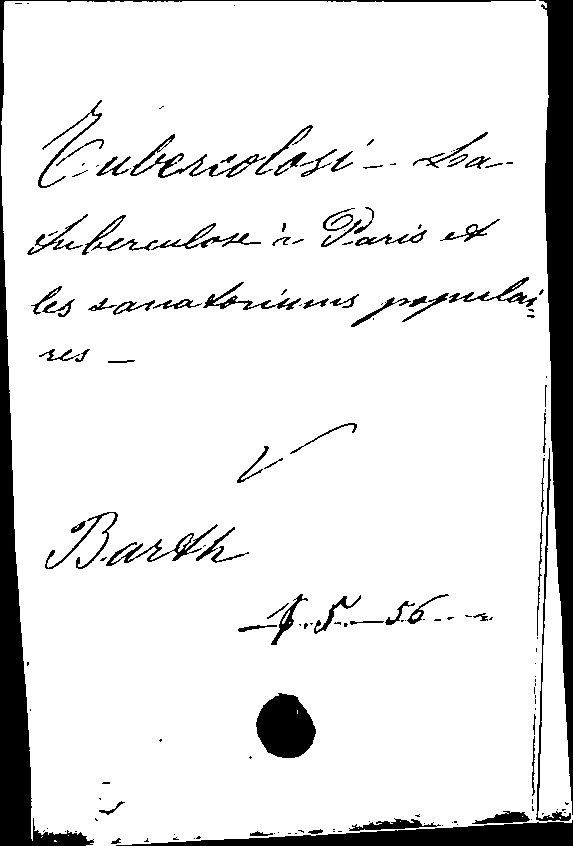 Tubercolosi - La
tuberculose à Paris et
les sanatoriums populai=
res -
V
Barth
5 56